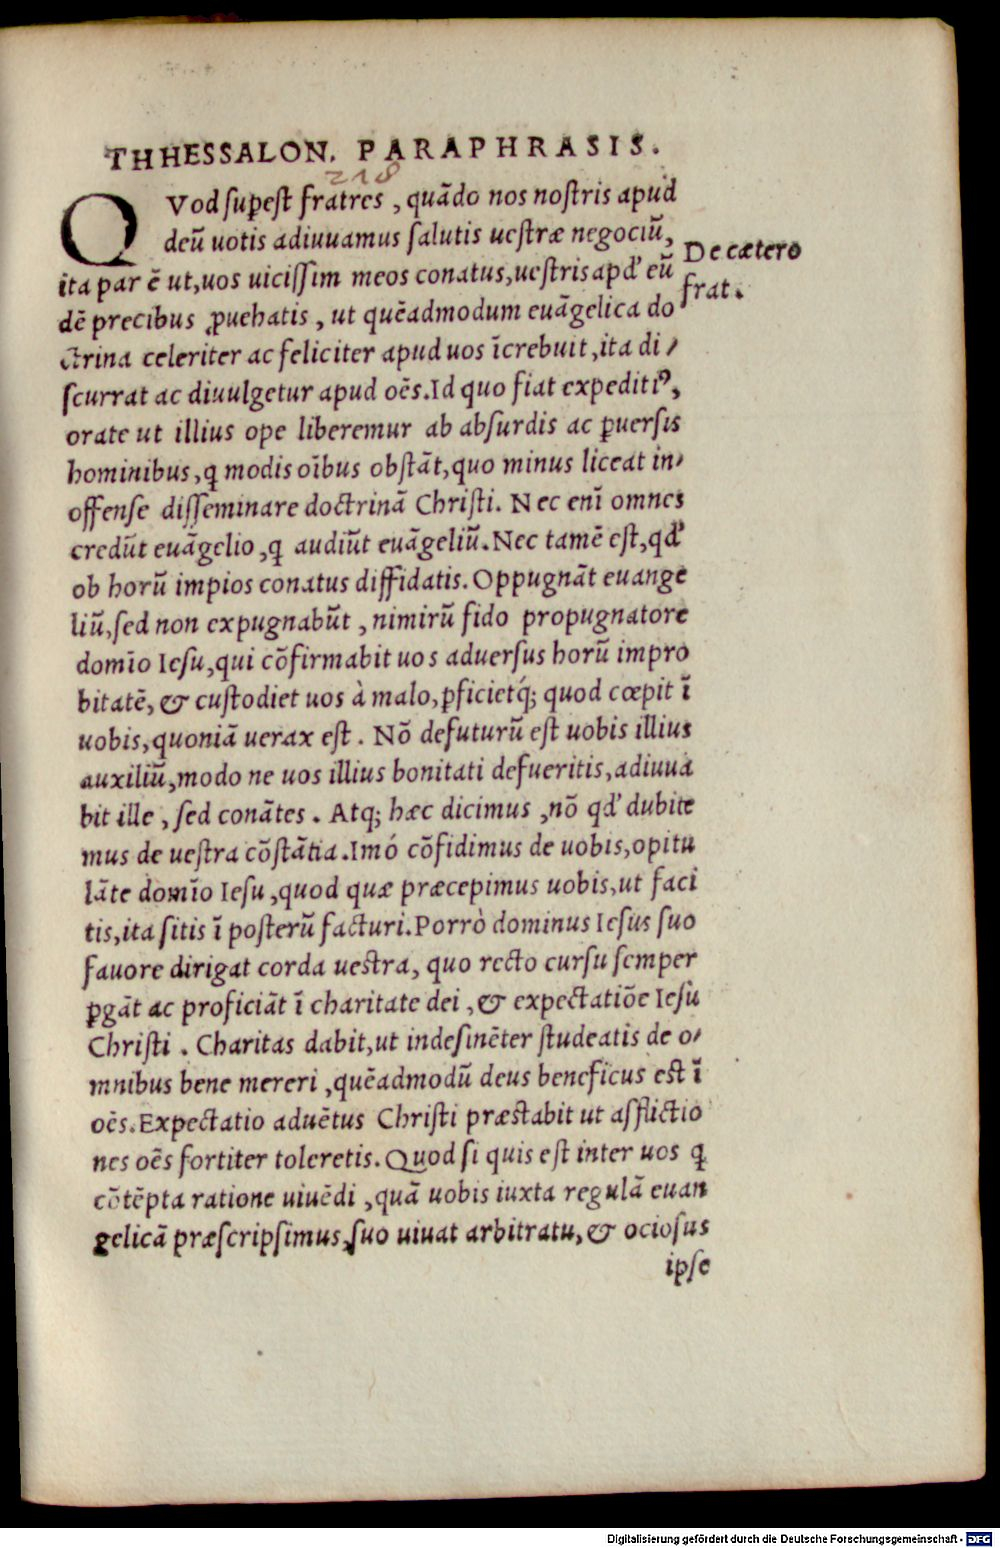 THHESSALON. PARAPHRASIS.
218
QVod supest fratres, quãdo nos nostris apud
deũ uotis adiuuamus salutis uestræ negociũ,
De cætero
ita par ẽ ut, uos uicissim meos conatus, uestris apd' eũ
frat.
dẽ precibus ꝓuehatis, ut quẽadmodum euãgelica do
ctrina celeriter ac feliciter apud uos ĩcrebuit, ita di/
scurrat ac diuulgetur apud oẽs. Id quo fiat expeditiꝰ,
orate ut illius ope liberemur ab absurdis ac ꝑuersis
hominibus, q modis oĩbus obstãt, quo minus liceat in/
offense disseminare doctrinã Christi. Nec enĩ omnes
credũt euãgelio, q audiũt euãgeliũ. Nec tamẽ est, qd'
ob horũ impios conatus diffidatis. Oppugnãt euange
liũ, sed non expugnabũt, nimirũ fido propugnatore
domĩo Iesu, qui cõfirmabit uos aduersus horũ impro
bitatẽ, & custodiet uos à malo, ꝑficietq́; quod cœpit ĩ
uobis, quoniã uerax est. Nõ defuturũ est uobis illius
auxiliũ, modo ne uos illius bonitati defueritis, adiuua
bit ille, sed conãtes. Atq; hæc dicimus, nõ qd' dubite
mus de uestra cõstãtia. Imó cõfidimus de uobis, opitu
lãte domĩo Iesu, quod quæ præcepimus uobis, ut faci
tis, ita sitis ĩ posterũ facturi. Porrò dominus Iesus suo
fauore dirigat corda uestra, quo recto cursu semper
ꝑgãt ac proficiãt ĩ charitate dei, & expectatiõe Iesu
Christi. Charitas dabit, ut indesinẽter studeatis de o/
mnibus bene mereri, quẽadmodũ deus beneficus est ĩ
oẽs. Expectatio aduẽtus Christi præstabit ut afflictio
nes oẽs fortiter toleretis. Quod si quis est inter uos q
cõtẽpta ratione uiuẽdi, quã uobis iuxta regulã euan
gelicã præscripsimus, suo uiuat arbitratu, & ociosus
ipse
Digitalisierung gefördert durch die Deutsche Forschungsgemeinschaft - DFG